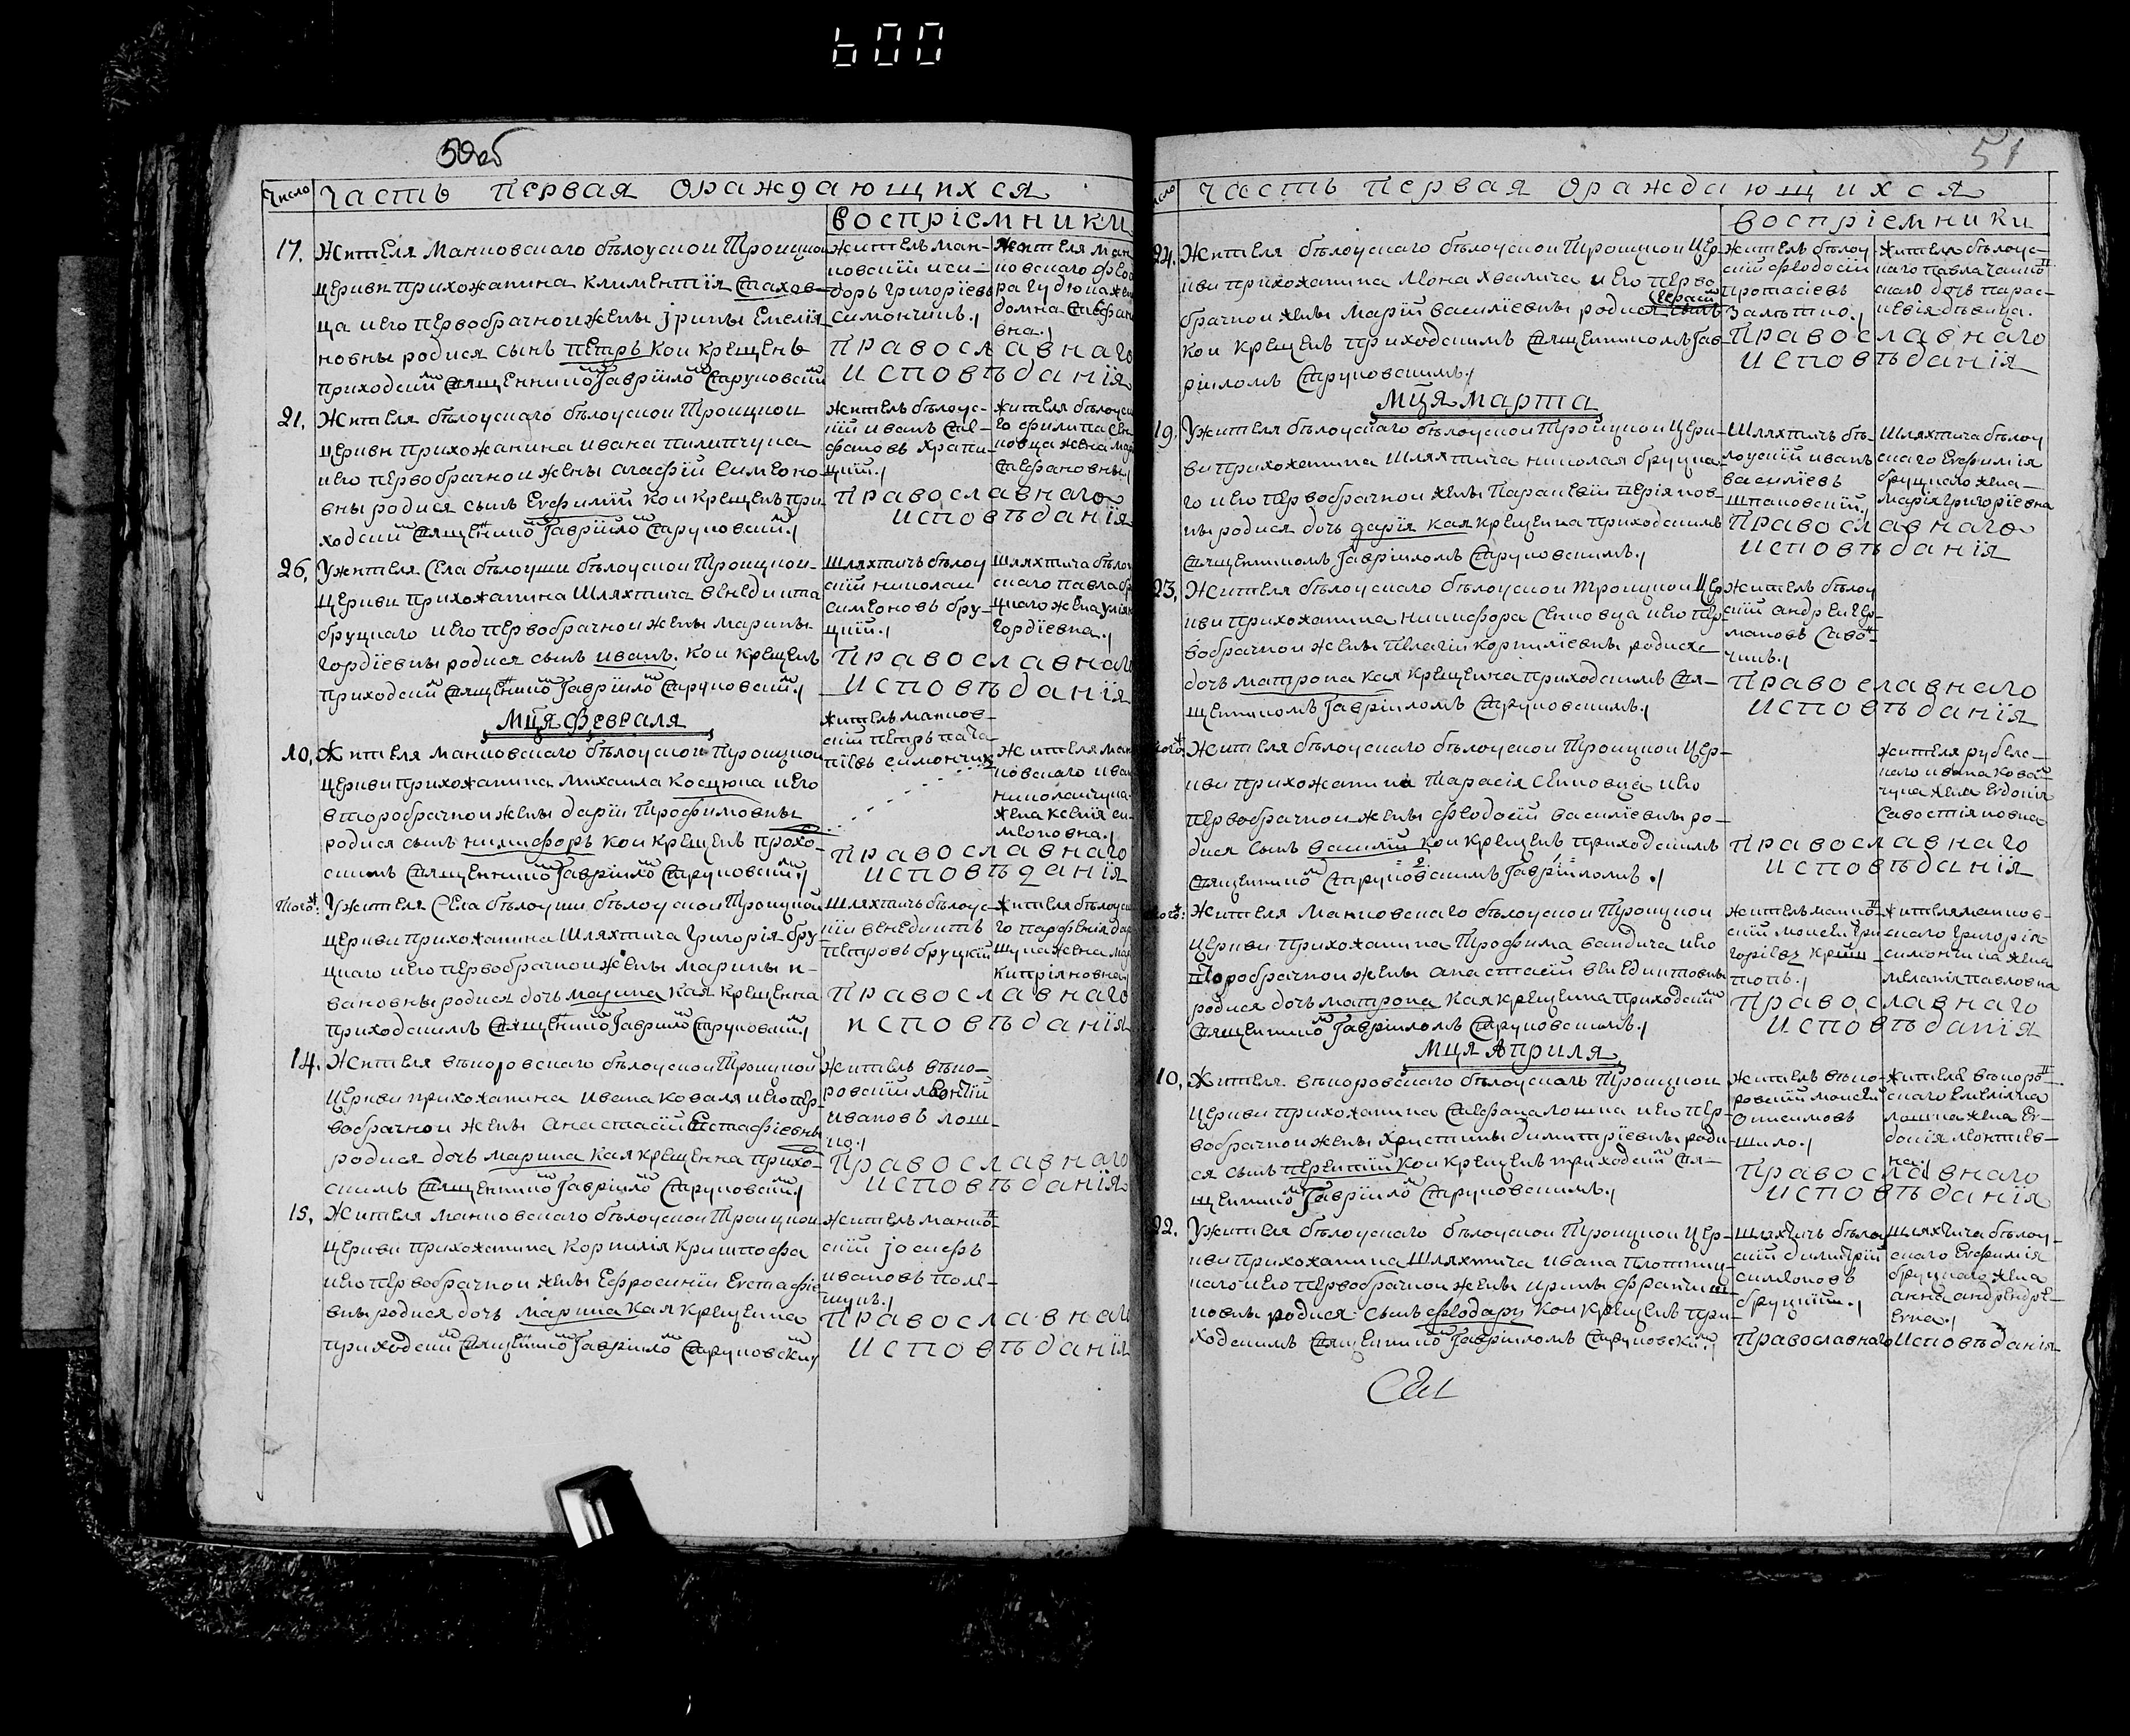 600
50об
Число
Часть первая ораждающихся
воспріемники
17. Жителя Манковскаго бѣлоускои Троицкои
церкви прихожанина климентія Стахов-
ца и его первобрачнои жены Јрины Емелія-
новны родися сынъ петръ кои крещенъ
приходскимъ Священникомъ Гавріиломъ Струковскимъ
житель ман-
ковскій иси-
доръ григоріевъ
Симончикъ.
жителя ман
ковскаго Фео
ра гудюка жен
домна Стефан
вна.
православнаго
исповѣданія
21. Жителя бѣлоускаго бѣлоускои Троицкои
церкви прихожанина ивана пилипчука
и его первобрачнои жены агафіи Симеоно-
вны родися сынъ Евфимій кои крещенъ при-
ходскимъ Священникомъ Гавріиломъ Струковскимъ
житель бѣлоус-
кій иванъ Сте-
фановъ Храпи-
цкій.
жителя бѣлоуск
го филипа Сен
ковца жена мар
Стефановны
православнаго
исповѣданія
26. У жителя Села бѣлоуши бѣлоускои Троицкои-
церкви прихожанина Шляхтича венедикта
бруцкаго и его первобрачнои жены марины
гордіевны родися сынъ иванъ. кои крещенъ
приходскимъ Священникомъ Гавріиломъ Струковскимъ
Шляхтичъ бѣлоу
скій николай
симеоновъ бру-
цкій.
Шляхтича бѣлоу
скаго павла бр
цкаго жена улія
гордіевна.
православнаго
исповѣданія
Мця февраля
10. Жителя манковскаго бѣлоускои Троицкои
церкви прихожанина михаила косцюка и его
второбрачнои жены даріи Трофимовны
родися сынъ никифоръ кои крещенъ прихо-
скимъ Священникомъ Гавріиломъ Струковскимъ
житель манков-
скій петръ
симончикъ
жителя ман
ковскаго иван
николайчука
жена ксенія си-
меоновна.
православнаго
исповѣданія
того: У жителя Села бѣлоуши бѣлоускои Троицкой
церкви прихожанина Шляхтича григорія бру
цкаго и его первобрачнои жены марины и-
вановны родися дочь марина кая крещенна
приходскимъ Священникомъ Гавріиломъ Струковскимъ
Шляхтичъ бѣлоус-
кій венедиктъ
петровъ бруцкій
жителя бѣлоуск
го парфенія дар
щука жена мар
Кипріяновна
православнаго
исповѣданія
14. Жителя вѣкоровскаго бѣлоускои Троицкой
церкви прихожанина ивана коваля и его пер-
вобрачнои жены анастасіи Евстафіевны
родися дочь марина кая крещенна прихо-
скимъ Священникомъ Гавріиломъ Струковскимъ
житель вѣко-
ровскій леонтій
ивановъ лош-
ко.
православнаго
исповѣданія
15. Жителя манковскаго бѣлоускои Троицкои
церкви прихожанина корнилія криштофа
и его первобрачнои жены Ефросиніи Евстафіе-
вны родися дочь марина кая крещенна
приходскимъ Священникомъ Гавріиломъ Струковскимъ
житель манков-
скій јосифъ
ивановъ поле-
щукъ.
православнаго
исповѣданія
51
Часть первая ораждающихся
воспріемники
24. Жителя бѣлоускаго бѣлоускои Троицкои Цер-
кви прихожанина леона Хвалича и его перво
брачнои жены маріи василіевны родися сынъ
кои крещенъ приходскимъ Священникомъ Гав-
ріиломъ Струковскимъ.
житель бѣлоу
скій феодосій
протасіевъ
жителя бѣлоус-
скаго дочь парас-
кевія дѣвица.
православнаго
исповѣданія
Мця марта
19. У жителя бѣлоускаго бѣлоускои Троицкои Церк-
ви прихожанина Шляхтича николая бруцка-
го и его первобрачнои жены параскевіи
родися дочь дарія кая крещенна приходскимъ
Священникомъ Гавріиломъ Струковскимъ.
Шляхтичъ бѣ-
лоускій иванъ
василіевъ
Шпаковскій.
Шляхтича бѣлоу
скаго Евфимія
бруцкаго жена-
марія григоріевна
православнаго
исповѣданія
23. Жителя бѣлоускаго бѣлоускои Троицкои Цер
кви прихожанина никифора Сенковца и его пер-
вобрачнои жены пелагіи корниліевны родися
дочь матрона кая крещенна приходскимъ Свя-
щенникомъ Гавріиломъ Струковскимъ.
житель бѣлоу
скій андрей гер-
мановъ Саво-
чикъ.
православнаго
исповѣданія
того: Жителя бѣлоускаго бѣлоускои Троицкои Цер-
кви прихожанина Тарасія Сенковца и его
первобрачнои жены феодосіи василіевны ро-
дися сынъ василій кои крещенъ приходскимъ
Священникомъ Струковскимъ Гавріиломъ.
жителя рубел-
каго ивана коваль
чука жена Евдокія
Савостіяновна
православнаго
исповѣданія
того: Жителя манковскаго бѣлоускои Троицкои
Церкви прихожанина Трофима вандича и его
второбрачнои жены анастасіи венедиктовны
родися дочь матрона кая крещенна приходскимъ
Священникомъ Гавріиломъ Струковскимъ.
житель манков-
скій моисей гри
горіевъ криш
топъ.
жителя манков-
скаго григорія
симончика жена
меланія павловна
православнаго
исповѣданія
Мця Априля
10. Жителя вѣкоровскаго бѣлоускаго Троицкои
Церкви прихожанина Стефана лошка и его пер-
вобрачнои жены христины димитріевны роди-
ся сынъ терентій кои крещенъ приходскимъ Свя-
щенникомъ Гавріиломъ Струковскимъ.
житель вѣко-
ровскій моисей
онисимовъ
шило.
жителя вѣкоров-
скаго Емиліяна
лошка жена Ев-
докія леонтіев-
на.
православнаго
исповѣданія
22. У жителя бѣлоускаго бѣлоускои Троицкои Цер-
кви прихожанина Шляхтича ивана Плотниц-
каго и его первобрачнои жены ирины францишк-
новны родися сынъ феодоръ кои крещенъ при-
ходскимъ Священникомъ Гавріиломъ Струковскимъ.
Шляхтичъ бѣлоу
скій димитрій
симеоновъ
бруцкій.
Шляхтича бѣлоу-
скаго Евфимія
бруцкаго жена
анна
православнаго исповѣданія